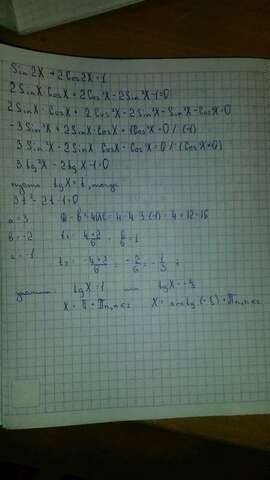 Sin2X + 2Cos2X = 1
2SinX·CosX + 2Cos²X - 2Sin²X - 1 = 0
2SinX·CosX + 2Cos²X - 2Sin²X - Sin²X - Cos²X = 0
-3Sin²X + 2SinX·CosX + Cos²X = 0 /·(-1)
3Sin²X - 2SinX·CosX - Cos²X = 0 /:(Cos²X≠0)
3tg²X - 2tgX - 1 = 0
пусть tgX = t, тогда
3t² - 2t - 1 = 0
a = 3 D = b² - 4ac = 4 - 4·3·(-1) = 4 + 12 = 16
b = -2 t₁ = (4+2)/6 = 6/6 = 1
c = -1
t₂ = (-4+2)/6 = -2/6 = -1/3
значит: tgX = 1 или tgX = -1/3
X = π/4 + πn, n∈z X = arctg(-1/3) + πn, n∈z